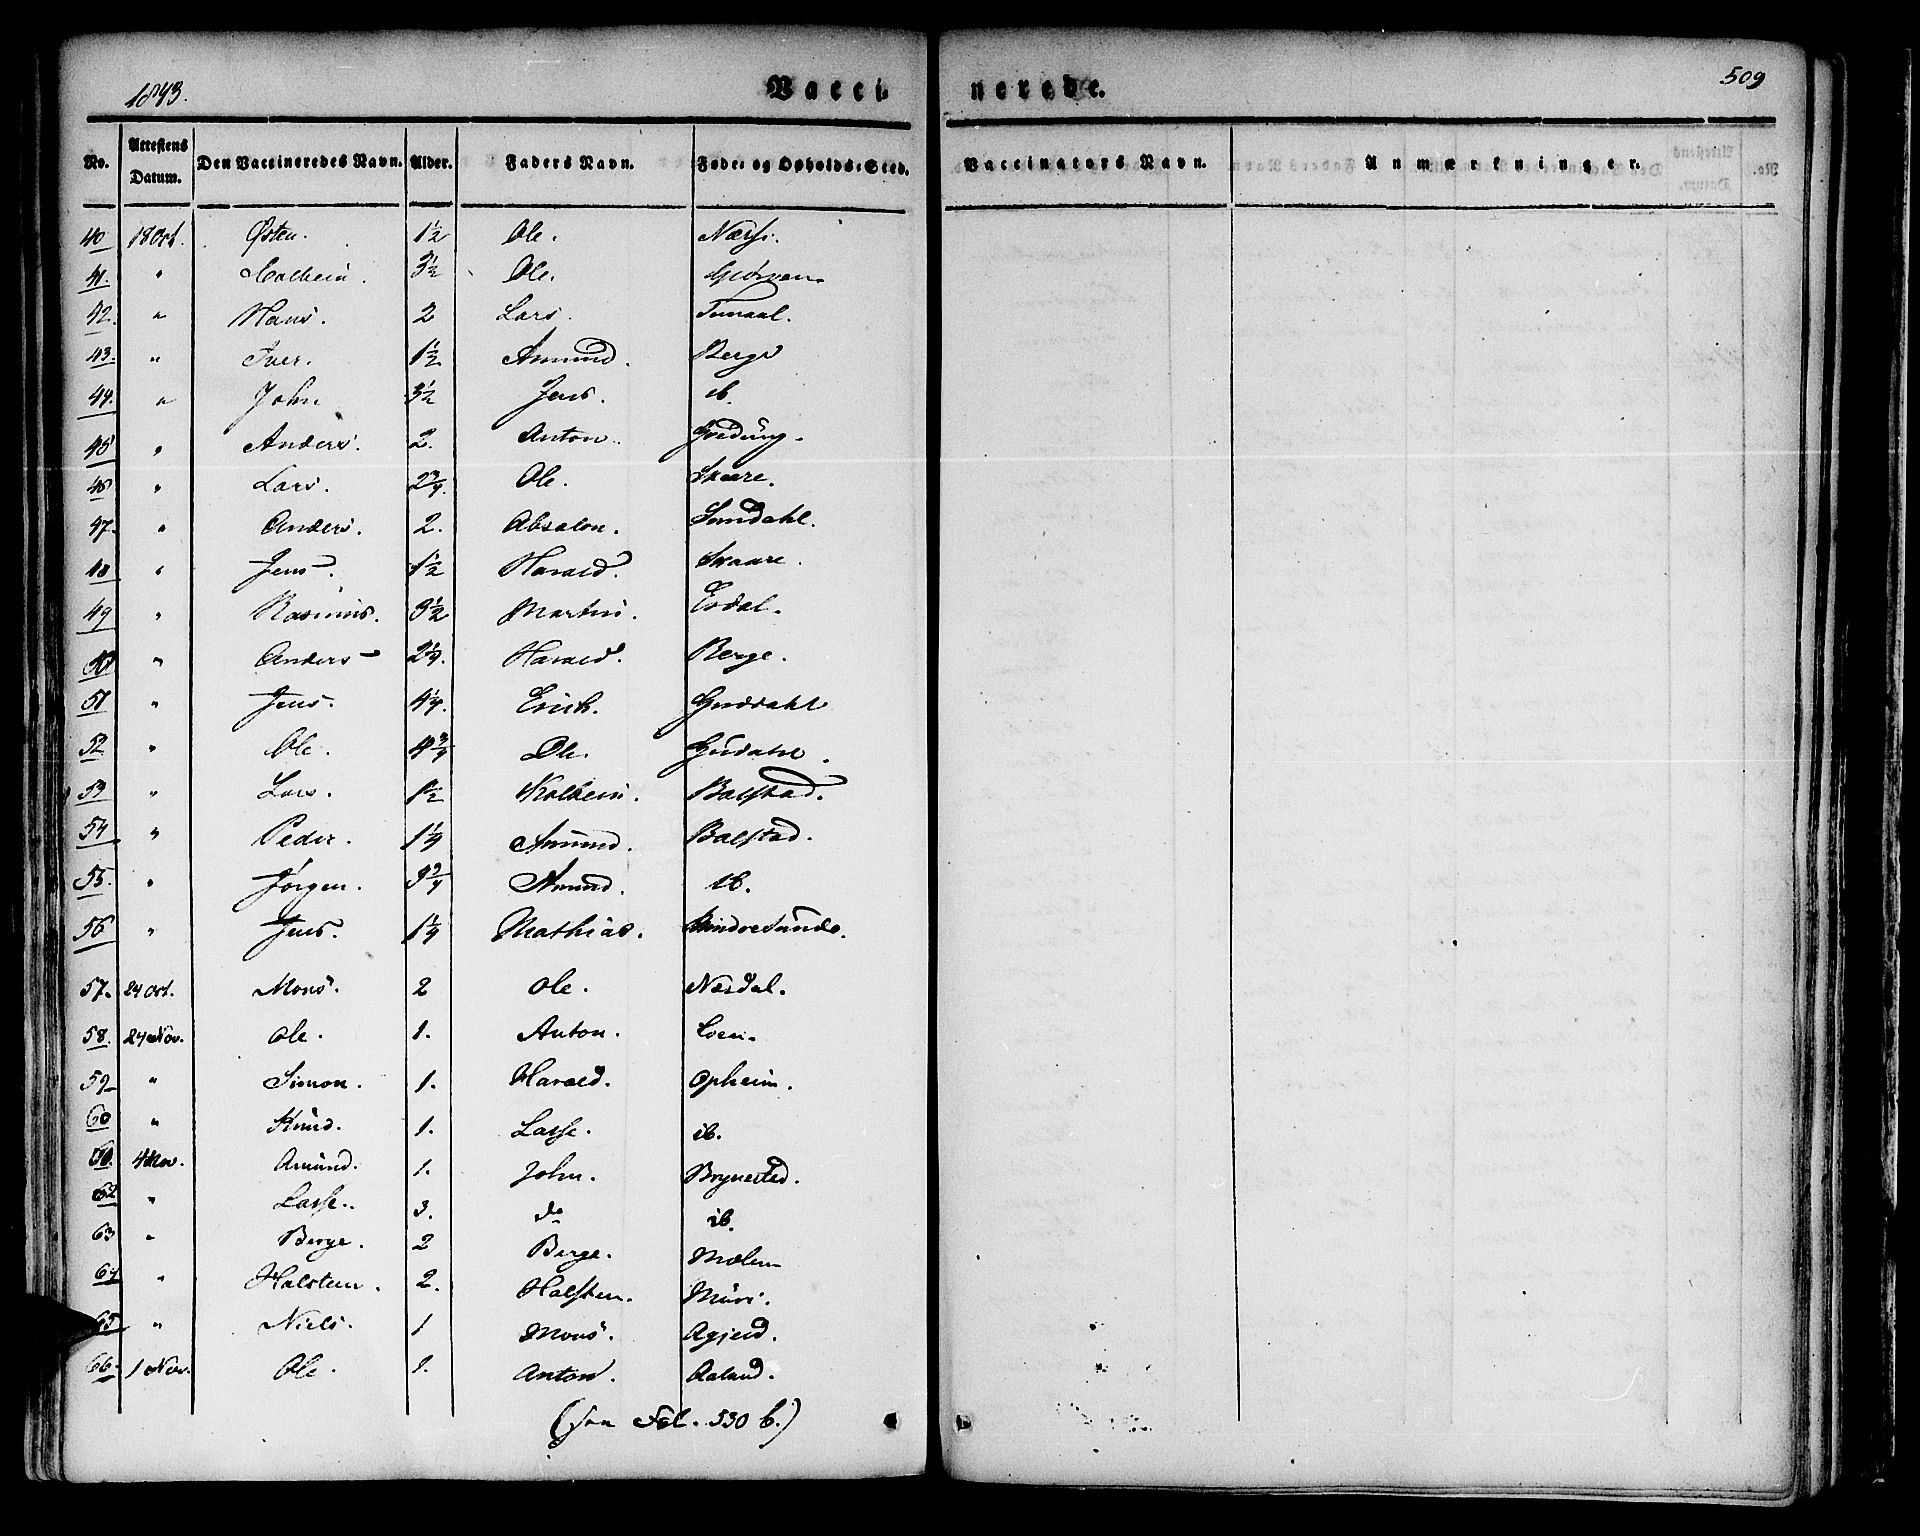 1843. Vacci- nerede. 509
No. Attestens Datum. Den Vaccineredes Navn. Alder. Faders Navn. Føde- og Opholds-Sted. Vaccinators Navn. Anmærkninger.
40 18 Oct. Østen. 1½ Ole.
41. " Colbein. 3½ Ole. Gjørven
42. " Hans. 2 Lars. Tunaal.
43. " Iver. 1½ Amund. Berge
44. " John 3½ Jens. ib.
45 " Anders. 2. Anton. Greding.
46 " Lars. 2¾. Ole. Skaare.
47. " Anders. 2. Absalon. Sundahl.
48 " Jens. 1½ Harald. Skaare.
49 " Rasmus. 3½ Martin. Esdal.
50 " Anders 2¼. Harald. Berge.
51 " Jens. 4¼. Erich. Guddahl
52 " Ole. 4¾ Ole. Gudahl.
53 " Lars. 1½ Kolbein. Balstad.
54 " Peder. 1¼ Amund. Balstad.
55. " Jørgen. 3¾ Amund. ib.
56 " Jens. 1¼ Mathias.
57. 24 Oct. Mons. 2 Ole. Næsdal.
58. 24 Nov. Ole. 1. Anton. Loen.
59 " Simon. 1. Harald. Opheim.
60 " Knud. 1. Lasse. ib.
4 Nov. Amund. 1. John. Brynestad.
62 " Lasse. 3. do ib.
63 " Berge. 2 Berge. Mælen
64 " Halstein. 2. Halsten. Muri.
65 " Niels. 1 Mons. Agjeld.
66. 1 Nov. Ole. 1. Anton. Aaland.
Fol. 530 b.)